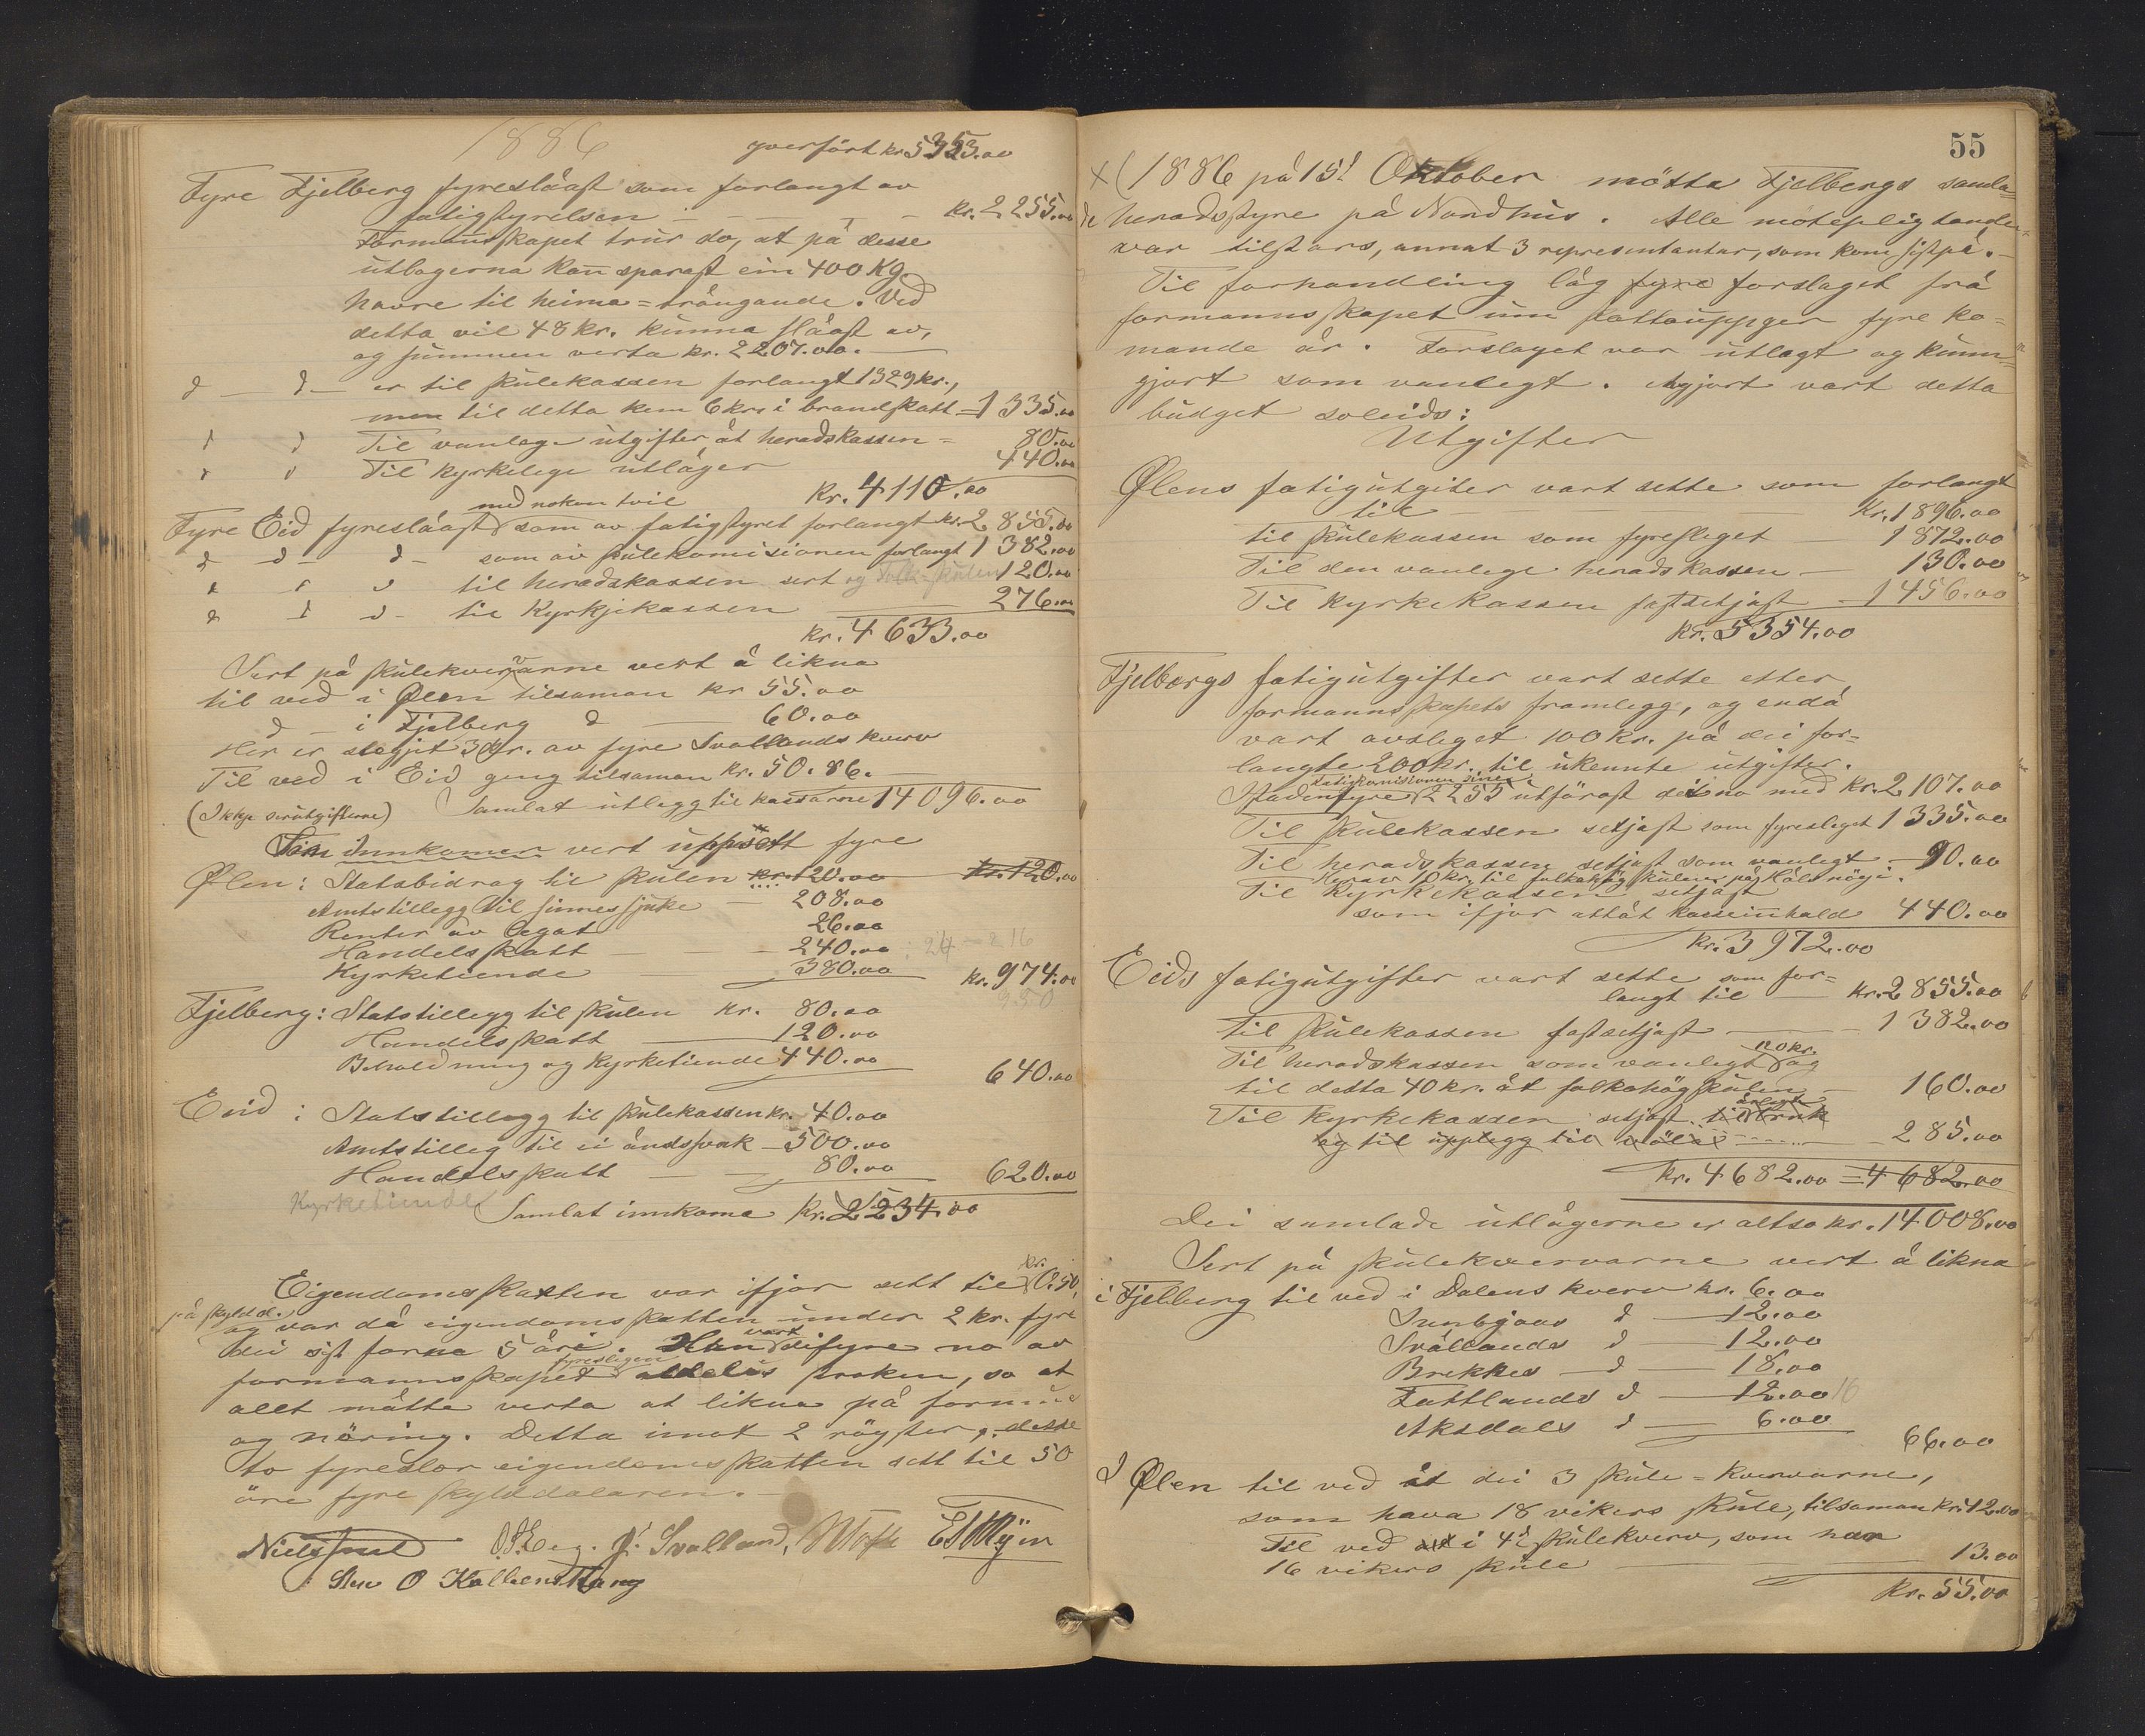 1886
yverfört kr 5353.00
Fyre Fjelberg fyresláast som forlangt av
fatigstyrelsen kr. 2255.00
Formannskapet trur do, at på desse
utlogerna kan sparast ein 400 Kg.
havre til heima=trångande. Ved
detta vil 48 kr. kunna sláast av,
og summen verta kr. 2207.00.
d d er til skulekassen forlangt 1329 kr.,
men til detta kem 6 kr. i brandskatt = 1335.00
d d Til vanlege utgifter åt heradskassen = 80.00
d d Til kyrkelege utlåger 440.00
Kr. 4110.00
med nokon tvil
Fyre Eid fyresláast som av fatigstyret forlangt kr. 2855.00
d d d som av skulekomisionen forlangt 1382.00
d d d til heradskassen sert og Folk-skulen 120.00
d d d til Kyrkjekassen 276.00
kr. 4633.00
Sert på skulekvervarne vert å likna
til ved i Ølen tilsaman kr 55.00
d i Fjelberg d 60.00
Her er slegjit 30 kr. av fyre Svallands kverv
Til ved i Eid geng tilsaman kr. 50.86.
(Ikkje serutgifterne) Samlat utlegg til kassarne 14096.00
Innkomer vert uppsett fyre
Ølen: Statsbidrag til skulen kr. 120.00 kr. 120.00
Amtstillegg til sinnessjuke 208.00
Renter av legat 26.00
Handelsskatt 240.00 : 24 - 216
Kyrketiende 380.00 kr. 974.00
950
Fjelberg: Statstillegg til skulen kr. 80.00
Handelsskatt 120.00
Behaldning og Kyrketiende 440.00 640.00
Eid: Statstillegg til skulekassen kr. 40.00
Amtstillegg til ei åndssvak 500.00
Handelsskatt 80.00 620.00
Kyrketiende Samlat innkoma Kr. 2234.00
Eigendomsskatten var ifjor sett til kr. 0.50,
på skyldd.
og var då eigendomsskatten under 2 kr. fyre
dei sist forne 5 åri. Han vart difyre no av
formannskapet fyreslegen aldeles stroken, so at
allt måtte verta at likna på formue
og näring. Detta imot 2 röyster, desse
to fyreslor eigendomsskatten sett til 50
öre fyre skylddalaren.
O. S. Eeg. J. Svalland,
O Kallevi
55
x (1886 på 15d Oktober mötte Fjelbergs samla=
de heradsstyre på Nordhus. Alle mötepligtande
var tilstads, annat 3 representantar, som kom sistpå.
Til forhandling låg fyre forslaget frå
formannsskapet um skattauppger fyre ko=
mande år. Forslaget var utlagt og kunn=
gjort som vanlegt. Avgjort vart detta
budget soleids:
Utgifter
Ølens fatigutgifter vart sette som forlangt
til Kr. 1896.00
til skulekassen som fyresleget 1872.00
Til den vanlege heradskassen 130.00
Til Kyrkekassen fastsetjast 1456.00
kr. 5354.00
Fjelbergs fatigutgifter vart sette etter
formannsskapets framlegg, og endå
vart avsleget 100 kr. på dei for=
langte 200 kr. til ukennte utgifter.
fatigkomisionen sine
Istadenfyre 2255 utförast dei no med kr. 2107.00
Til skulekassen setjast som fyresleget 1335.00
Til heradskassen setjast som vanlegt 90.00
Herav 10 kr. til folkehögskulen på Halsnöy.
Til Kyrkekassen setjast
som ifjor attåt kasseinnhald 440.00
kr. 3972.00
Eids fatigutgifter vart sette som for=
langt til kr. 2855.00
Til skulekassen fastsetjast 1382.00
Til heradskassen som vanlegt 120 kr. og
til detta 40 kr. åt folkahögskulen 160.00
Til Kyrkekassen setjast til bruk
og til upplegg til 285.00
kr. 4682.00 = 4682.00
Dei samlade utlågerne er altso kr. 14008.00
Sert på skulekvervarne vert å likna
i Fjelberg til ved i Dalens kverv kr. 6.00
Sunbygdas d 12.00
Svallands d 12.00
Brekkes d 18.00
Fattlands d 12.00 16
Aksdals d 6.00
66.00
I Ølen til ved åt dei 3 skule=kvervarne,
som hava 18 vikers skule, tilsaman kr. 42.00
Til ved i 4d skulekverv, som har
16 vikers skule 13.00
Kr. 55.00